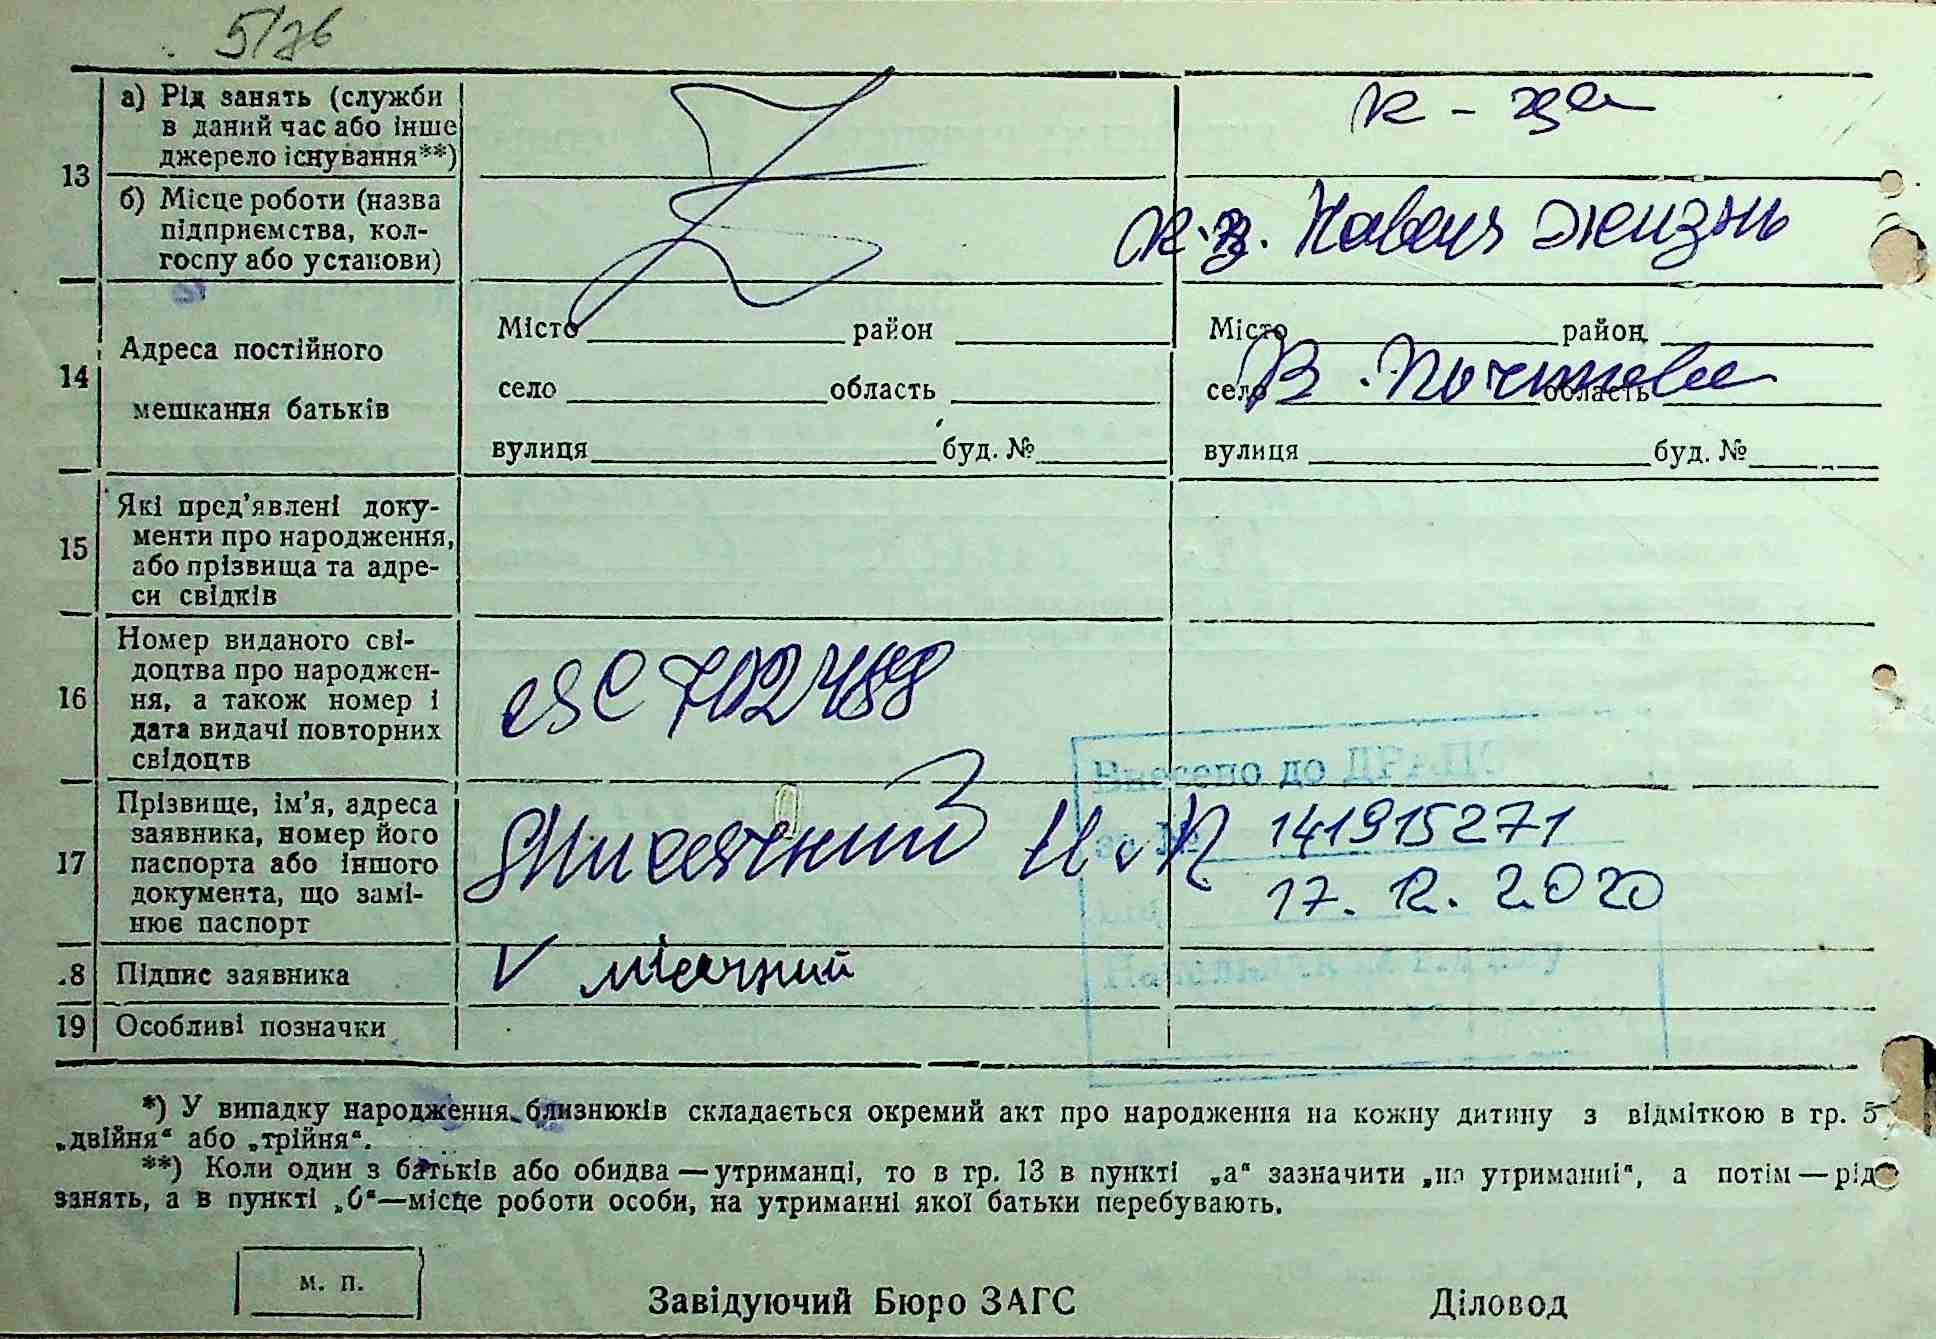 5/76
13
а) Рід занять (служби
в даний час або інше
джерело існування**)
к-ця
б) Місце роботи (назва
підприємства, кол-
госпу або установи)
к-з. Новая жизнь
14
Адреса постійного
мешкання батьків
Місто район
село область
вулиця буд. №
Місто район
село В. Почтова область
вулиця буд. №
15
Які пред'явлені доку-
менти про народження,
або прізвища та адре-
си свідків
16
Номер виданого сві-
доцтва про народжен-
ня, а також номер і
дата видачі повторних
свідоцтв
702488
17
Прізвище, ім'я, адреса
заявника, номер його
паспорта або іншого
документа, що замі-
нює паспорт
Внесено до ДРАЦС
за № 141915271
від 17.12.2020
.8
Підпис заявника
V місячний
19
Особливі позначки
*) У випадку народження близнюків складається окремий акт про народження на кожну дитину з відміткою в гр. 5
„двійня“ або „трійня“.
**) Коли один з батьків або обидва — утриманці, то в гр. 13 в пункті „а“ зазначити „на утриманні“, а потім — рід
занять, а в пункті „б“—місце роботи особи, на утриманні якої батьки перебувають.
м. п.
Завідуючий Бюро ЗАГС
Діловод